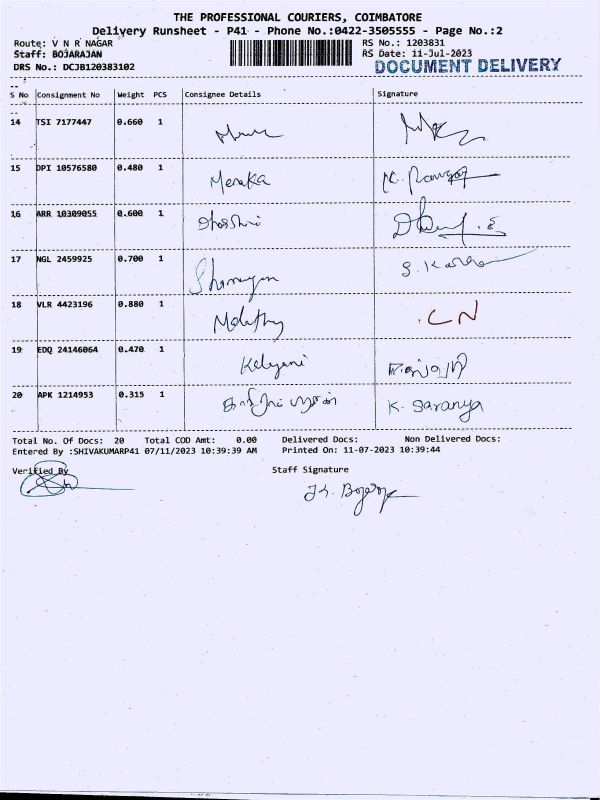 THE PROFESSIONAL COURIERS, COIMBATORE
Delivery Runsheet - P41 - Phone No.:0422-3505555 - Page No.:2
Route: V N R NAGAR
RS No.: 1203831
Staff: BOJARAJAN
RS Date: 11-Jul-2023
DRS No.: DCJB120383102
DOCUMENT DELIVERY
S No Consignment No Weight PCS Consignee Details Signature
14 TSI 7177447 0.660 1
15 DPI 10576580 0.480 1 Menaka
16 ARR 10309055 0.600 1
17 NGL 2459925 0.700 1
18 VLR 4423196 0.880 1 CN
19 EDQ 24146064 0.470 1 Kalyani
20 APK 1214953 0.315 1 K. Saranya
Total No. Of Docs: 20 Total COD Amt: 0.00 Delivered Docs: Non Delivered Docs:
Entered By :SHIVAKUMARP41 07/11/2023 10:39:39 AM Printed On: 11-07-2023 10:39:44
Verified By Staff Signature